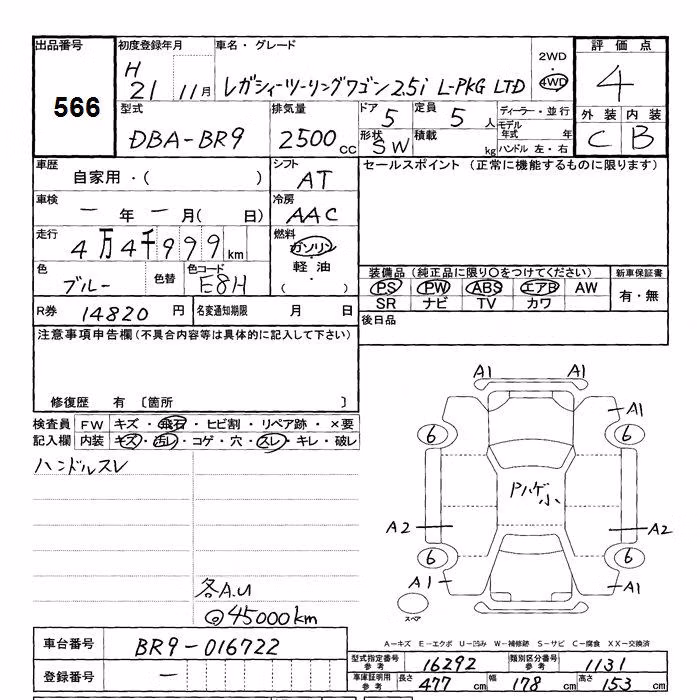 出品番号
566
初度登録年月
H
21 11月
車名・グレード
レガシィーツーリングワゴン2.5i L-PKG LTD
2WD
・
4WD
評価点
4
外装 内装
C B
型式
DBA-BR9
排気量
2500cc
ドア 5
形状 SW
定員 5人
積載 kg
ディーラー・並行
モデル年式 年
ハンドル 左・右
車歴
自家用・( )
シフト
AT
セールスポイント (正常に機能するものに限ります)
車検
ー年ー月( 日)
冷房
AAC
走行
4万4千999km
燃料
ガソリン
・
軽油
・
( )
色
ブルー
色替
色コード
E8H
装備品 (純正品に限り○をつけてください)
PS PW ABS エアB AW
SR ナビ TV カワ
新車保証書
有・無
R券 14820円
名変通知期限 月 日
後日品
注意事項申告欄(不具合内容等は具体的に記入して下さい)
修復歴 有 〔箇所 〕
検査員
記入欄
FW キズ・飛石・ヒビ割・リペア跡・×要
内装 キズ・汚レ・コゲ・穴・スレ・キレ・破レ
ハンドルスレ
各A.U
@45000km
A1 A1
A1
6 6
Pハゲ小
A2 A2
6 6
A1 A1
スペア
A-キズ E-エクボ U-凹み W-補修跡 S-サビ C-腐食 XX-交換済
車台番号 BR9-016722
登録番号 ー
型式指定番号
参考
16292
類別区分番号
参考
1131
車庫証明用
参考
長さ 477cm 幅 178cm 高さ 153cm